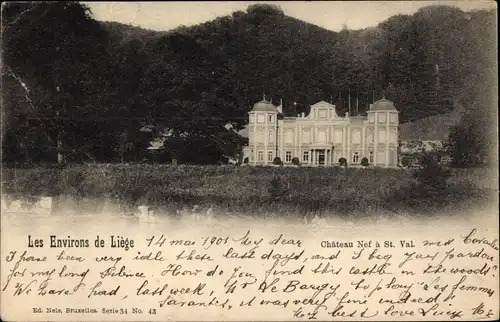 Les Environs de Liège 14 mai 1901 My dear
Château Nef à St. Val.
I have been very idle these last days, and I beg your pardon
for my long silence. How do you find this castle in the woods?
We have had, last week, Mr de Bargy to play "Les femmes
Savantes". It was very fine indeed.
My best love Lucy
Ed. Nels, Bruxelles. Serie 34 No. 43